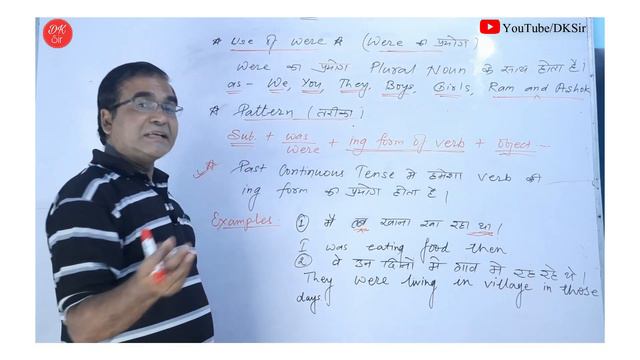 DK
Sir
YouTube/DKSir
* Use of were * (Were का प्रयोग)
Were का प्रयोग Plural Noun के साथ होता है।
as - We, You, They, Boys, Girls, Ram and Ashok
* Pattern (तरीका)
Sub. + was/were + ing form of verb + object -
* Past Continuous Tense मे हमेशा verb की
ing form का प्रयोग होता है।
Examples. ① मै तब खाना खा रहा था।
I was eating food then
② वे उन दिनों मे गाव मे रह रहे थे।
They were living in village in those
days